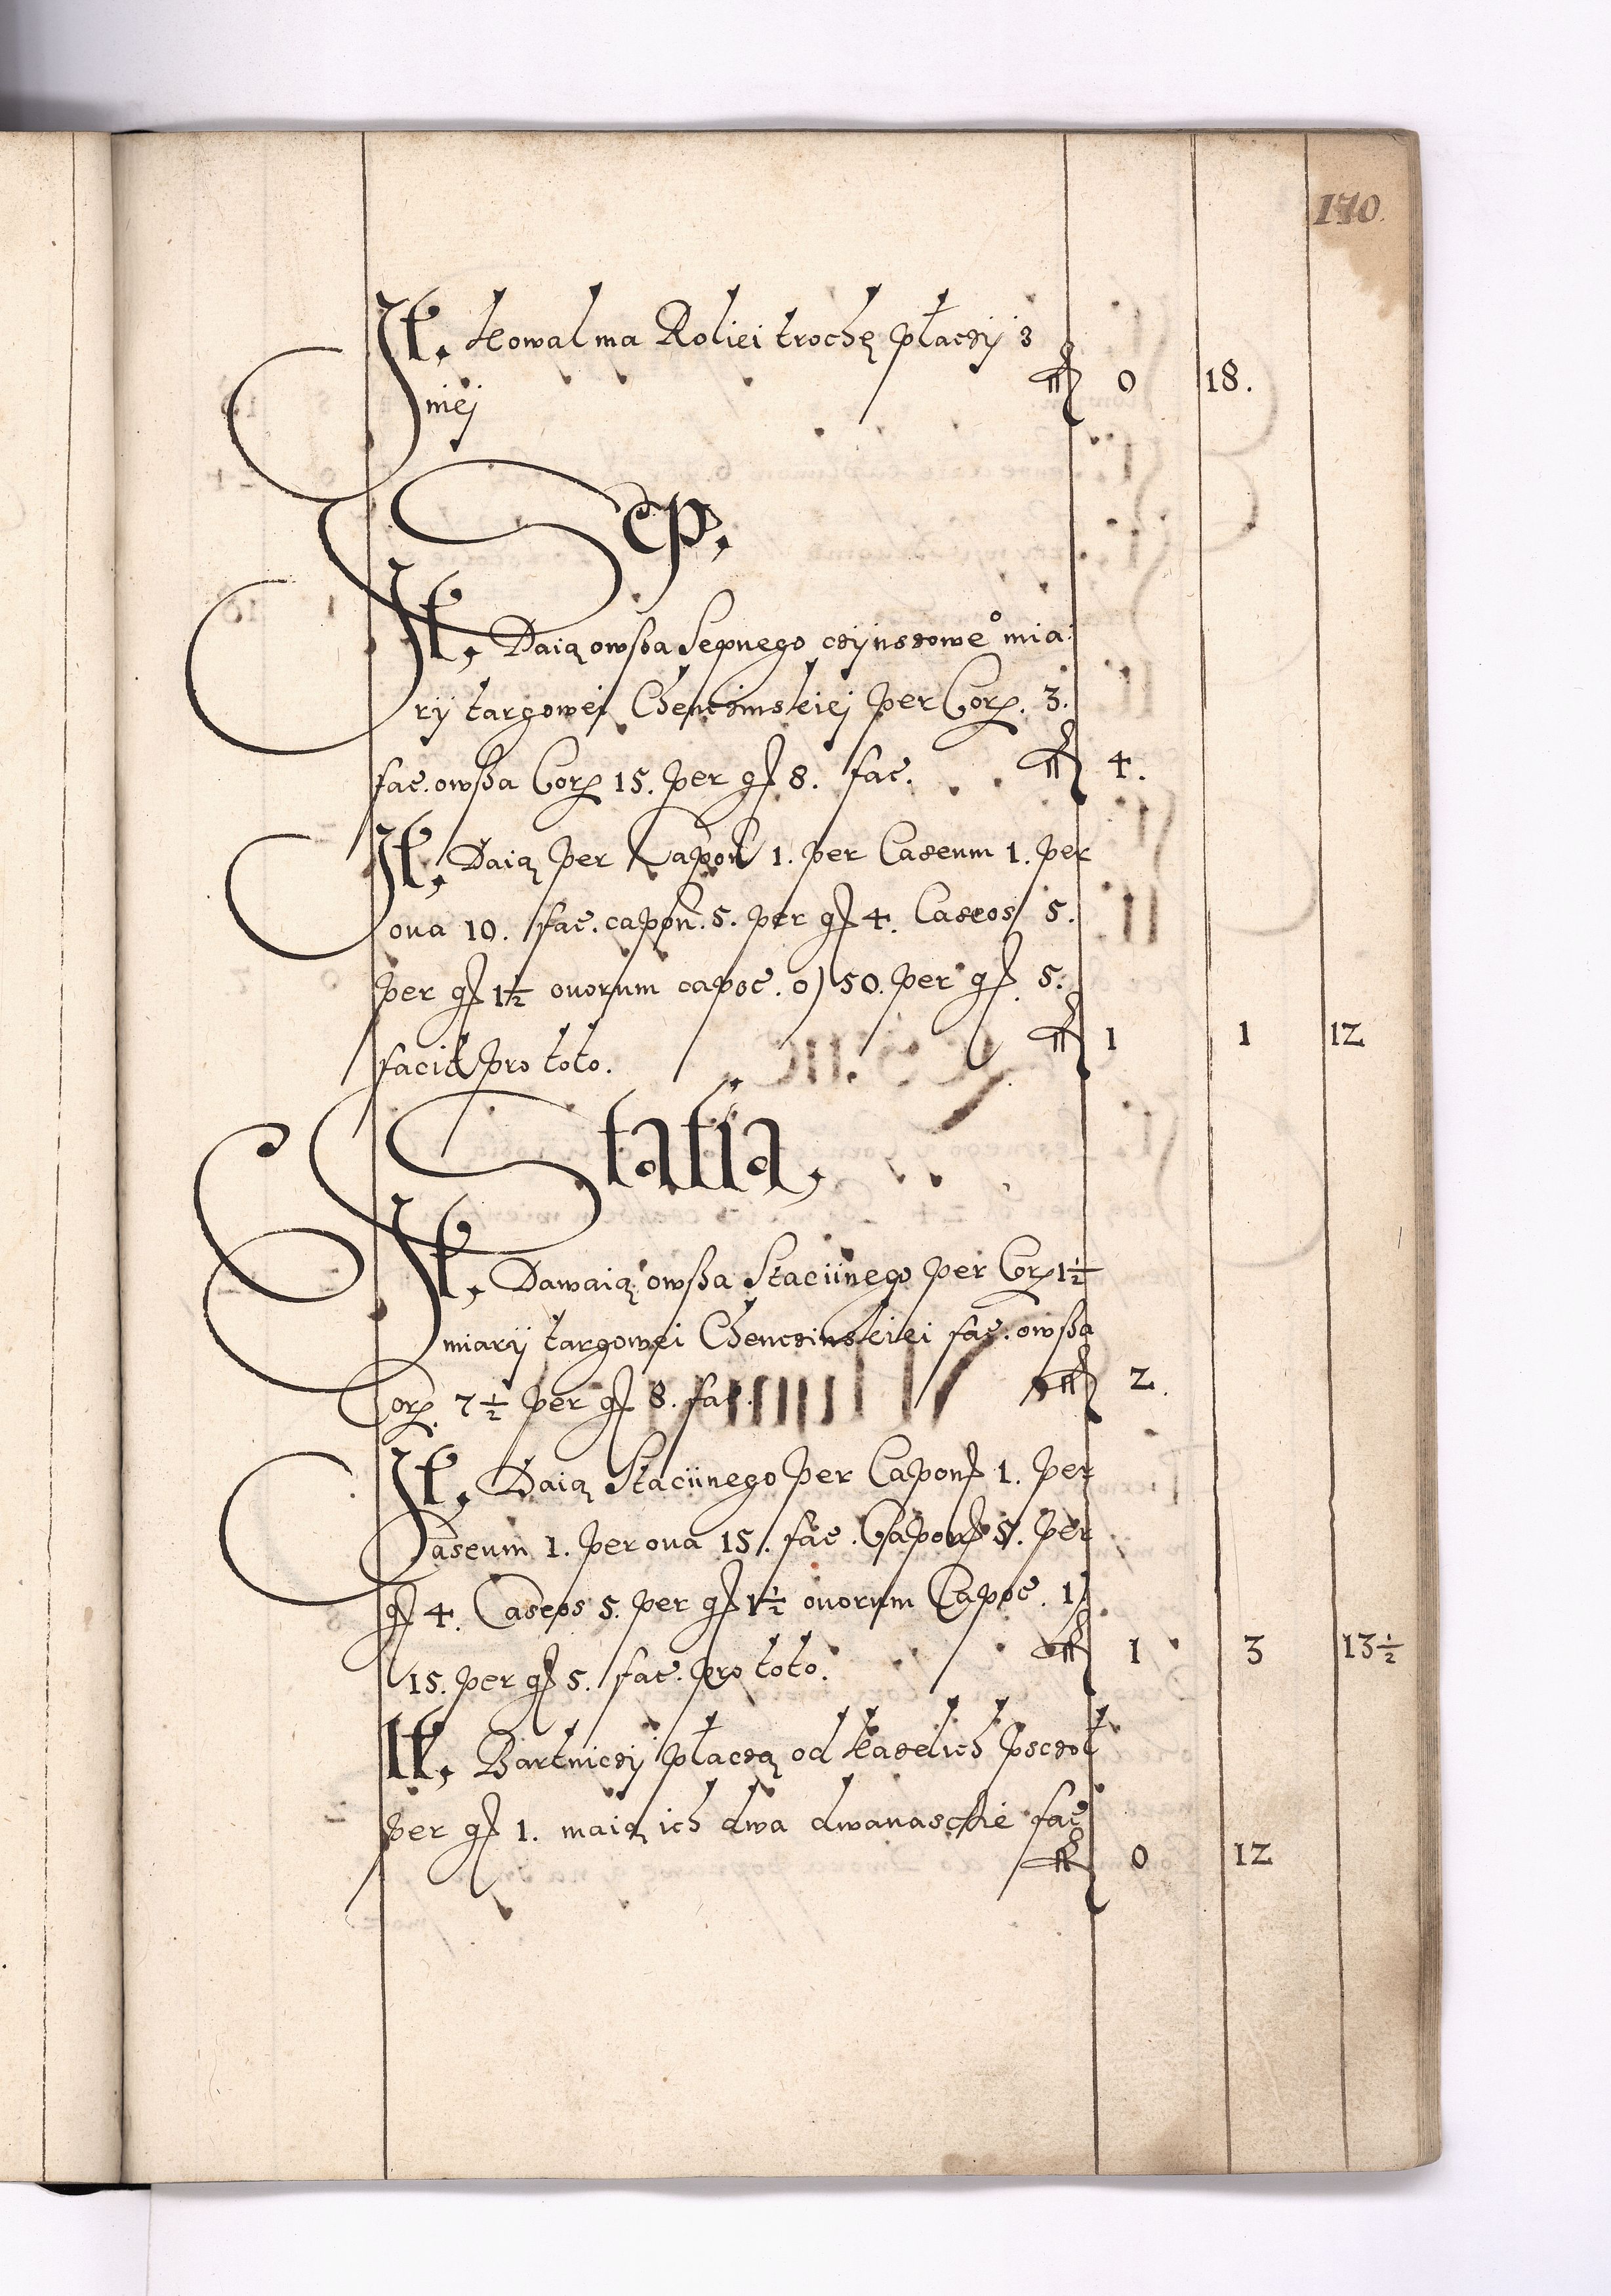 170.
It. Kowal ma Roliei trochę płaczÿ z
niej ff 0 18.
Sep.
It. Daią owßa Sepnego czÿnszowe° mia:
rÿ targowej Chenczinskiej per Corp. 3.
fac. owßa Corp 15. per gs 8. fac. ff 4.
It. Daią per Capon 1. per Caseum 1. per
oua 10. fac. capon. 5. per gs 4. Caseos 5.
per gs 1½ ouorum capoc. 0) 50. per gs 5.
facit pro toto. ff 1 1 12
Statia.
It. Dawaią owßa Staciinego per Corp 1½
miarÿ targowei Chenczinskiei fac: owßa
Corp. 7½ per gs 8. fac. ff 2.
It. Daią Staciinego per Capons 1. per
Caseum 1. per oua 15. fac. Capons 5. per
gs 4. Caseos 5. per gs 1½ ouorum Capoc. 1)
15. per gs 5. fac. pro toto. ff 1 3 13½
It. Bartniczÿ płaczą od kazdich Psczoł
per gs 1. maią ich dwa dwanasckie fac
ff 0 12